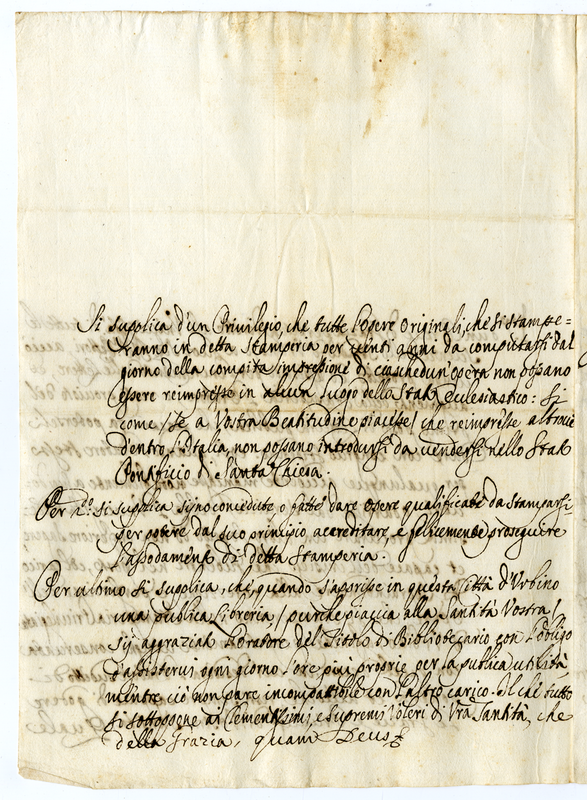 Si supplica d'un Privilegio, che tutte l'opere originali, che si stampe=
ranno in detta Stamperia per venti anni da computarsi dal
giorno della compita impressione di ciaschedun'opera non possano
essere reimpresse in alcun luogo dello Stato Ecclesiastico: Si
come / se a Vostra Beatitudine piacesse / che reimpresse altrove
d'entro l'Italia, non possano introdursi da vendersi nello Stato
Pontificio di Santa Chiesa.
Per 2.º si supplica siino concedute o fatte dare opere qualificate da stamparsi
per potere dal suo principio accreditare, e felicemente proseguire
l'assodamento di detta Stamperia.
Per ultimo si supplica, che quando s'aprisse in questa Città d'Urbino
una publica Libreria, / purche piaccia alla Santità Vostra /
sij aggraziato l'Oratore del Titolo di Bibliotecario con l'obligo
d'assistervi ogni giorno l'ore più proprie per la publica utilità,
mentre ciò non pare incompatibile con l'altro carico. Il che tutto
si sottopone ai Clementissimi, e Supremi Voleri di Vra Santità, che
della Grazia, quam Deus